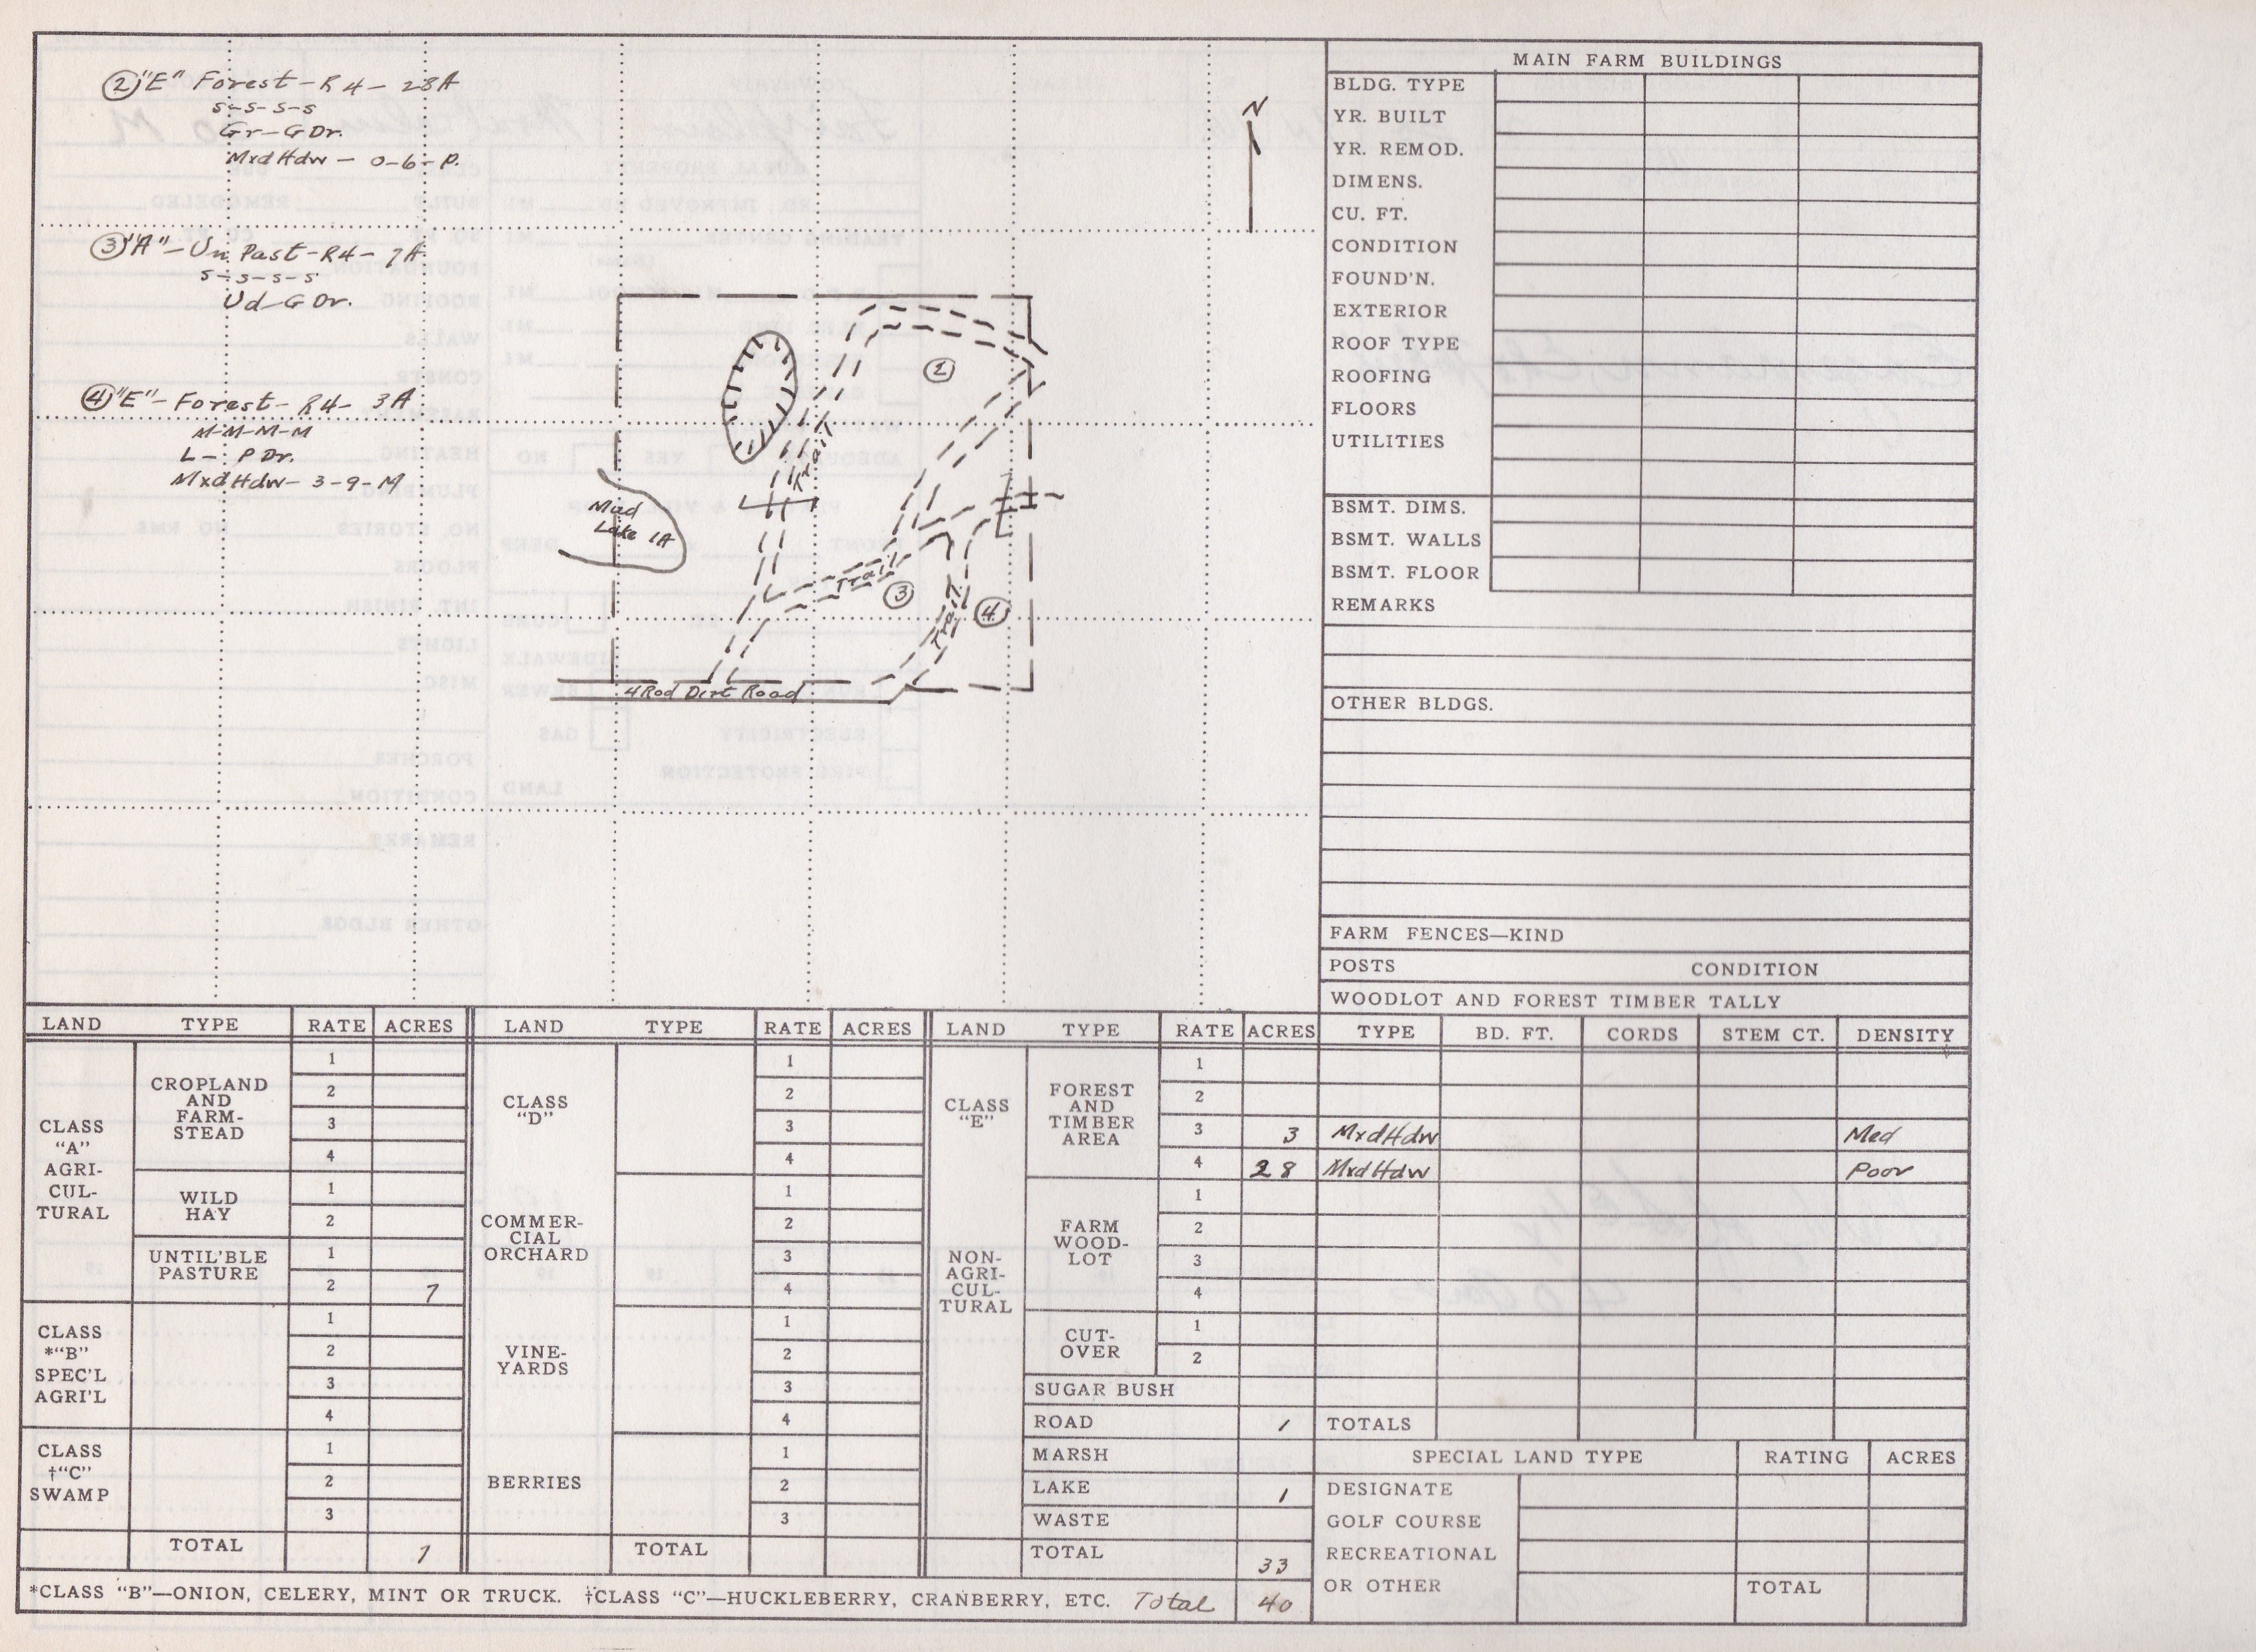 ②"E" Forest-R4-28A
S-S-S-S
Gr-G Dr.
MxdHdw - 0-6-P.
③"A"-Un. Past-R4-7A
S-S-S-S
Ud-G Dr.
④"E"-Forest-R4-3A
M-M-M-M
L-P Dr.
MxdHdw-3-9-M
N
②
Trail
Mud
Lake 1A
Trail
③
Trail
④
4 Rod Dirt Road
MAIN FARM BUILDINGS
BLDG. TYPE
YR. BUILT
YR. REMOD.
DIMENS.
CU. FT.
CONDITION
FOUND'N.
EXTERIOR
ROOF TYPE
ROOFING
FLOORS
UTILITIES
BSMT. DIMS.
BSMT. WALLS
BSMT. FLOOR
REMARKS
OTHER BLDGS.
FARM FENCES—KIND
POSTS CONDITION
WOODLOT AND FOREST TIMBER TALLY
TYPE BD. FT. CORDS STEM CT. DENSITY
MxdHdw Med
MxdHdw Poor
TOTALS
SPECIAL LAND TYPE RATING ACRES
DESIGNATE
GOLF COURSE
RECREATIONAL
OR OTHER TOTAL
LAND TYPE RATE ACRES
CLASS
"A"
AGRI-
CUL-
TURAL
CROPLAND
AND
FARM-
STEAD
1
2
3
4
WILD
HAY
1
2
UNTIL'BLE
PASTURE
1
2 7
CLASS
*"B"
SPEC'L
AGRI'L
1
2
3
4
CLASS
†"C"
SWAMP
1
2
3
TOTAL 7
LAND TYPE RATE ACRES
CLASS
"D"
1
2
3
4
COMMER-
CIAL
ORCHARD
1
2
3
4
VINE-
YARDS
1
2
3
4
BERRIES
1
2
3
TOTAL
LAND TYPE RATE ACRES
CLASS
"E"
NON-
AGRI-
CUL-
TURAL
FOREST
AND
TIMBER
AREA
1
2
3 3
4 28
FARM
WOOD-
LOT
1
2
3
4
CUT-
OVER
1
2
SUGAR BUSH
ROAD 1
MARSH
LAKE 1
WASTE
TOTAL 33
*CLASS "B"—ONION, CELERY, MINT OR TRUCK. †CLASS "C"—HUCKLEBERRY, CRANBERRY, ETC. Total 40